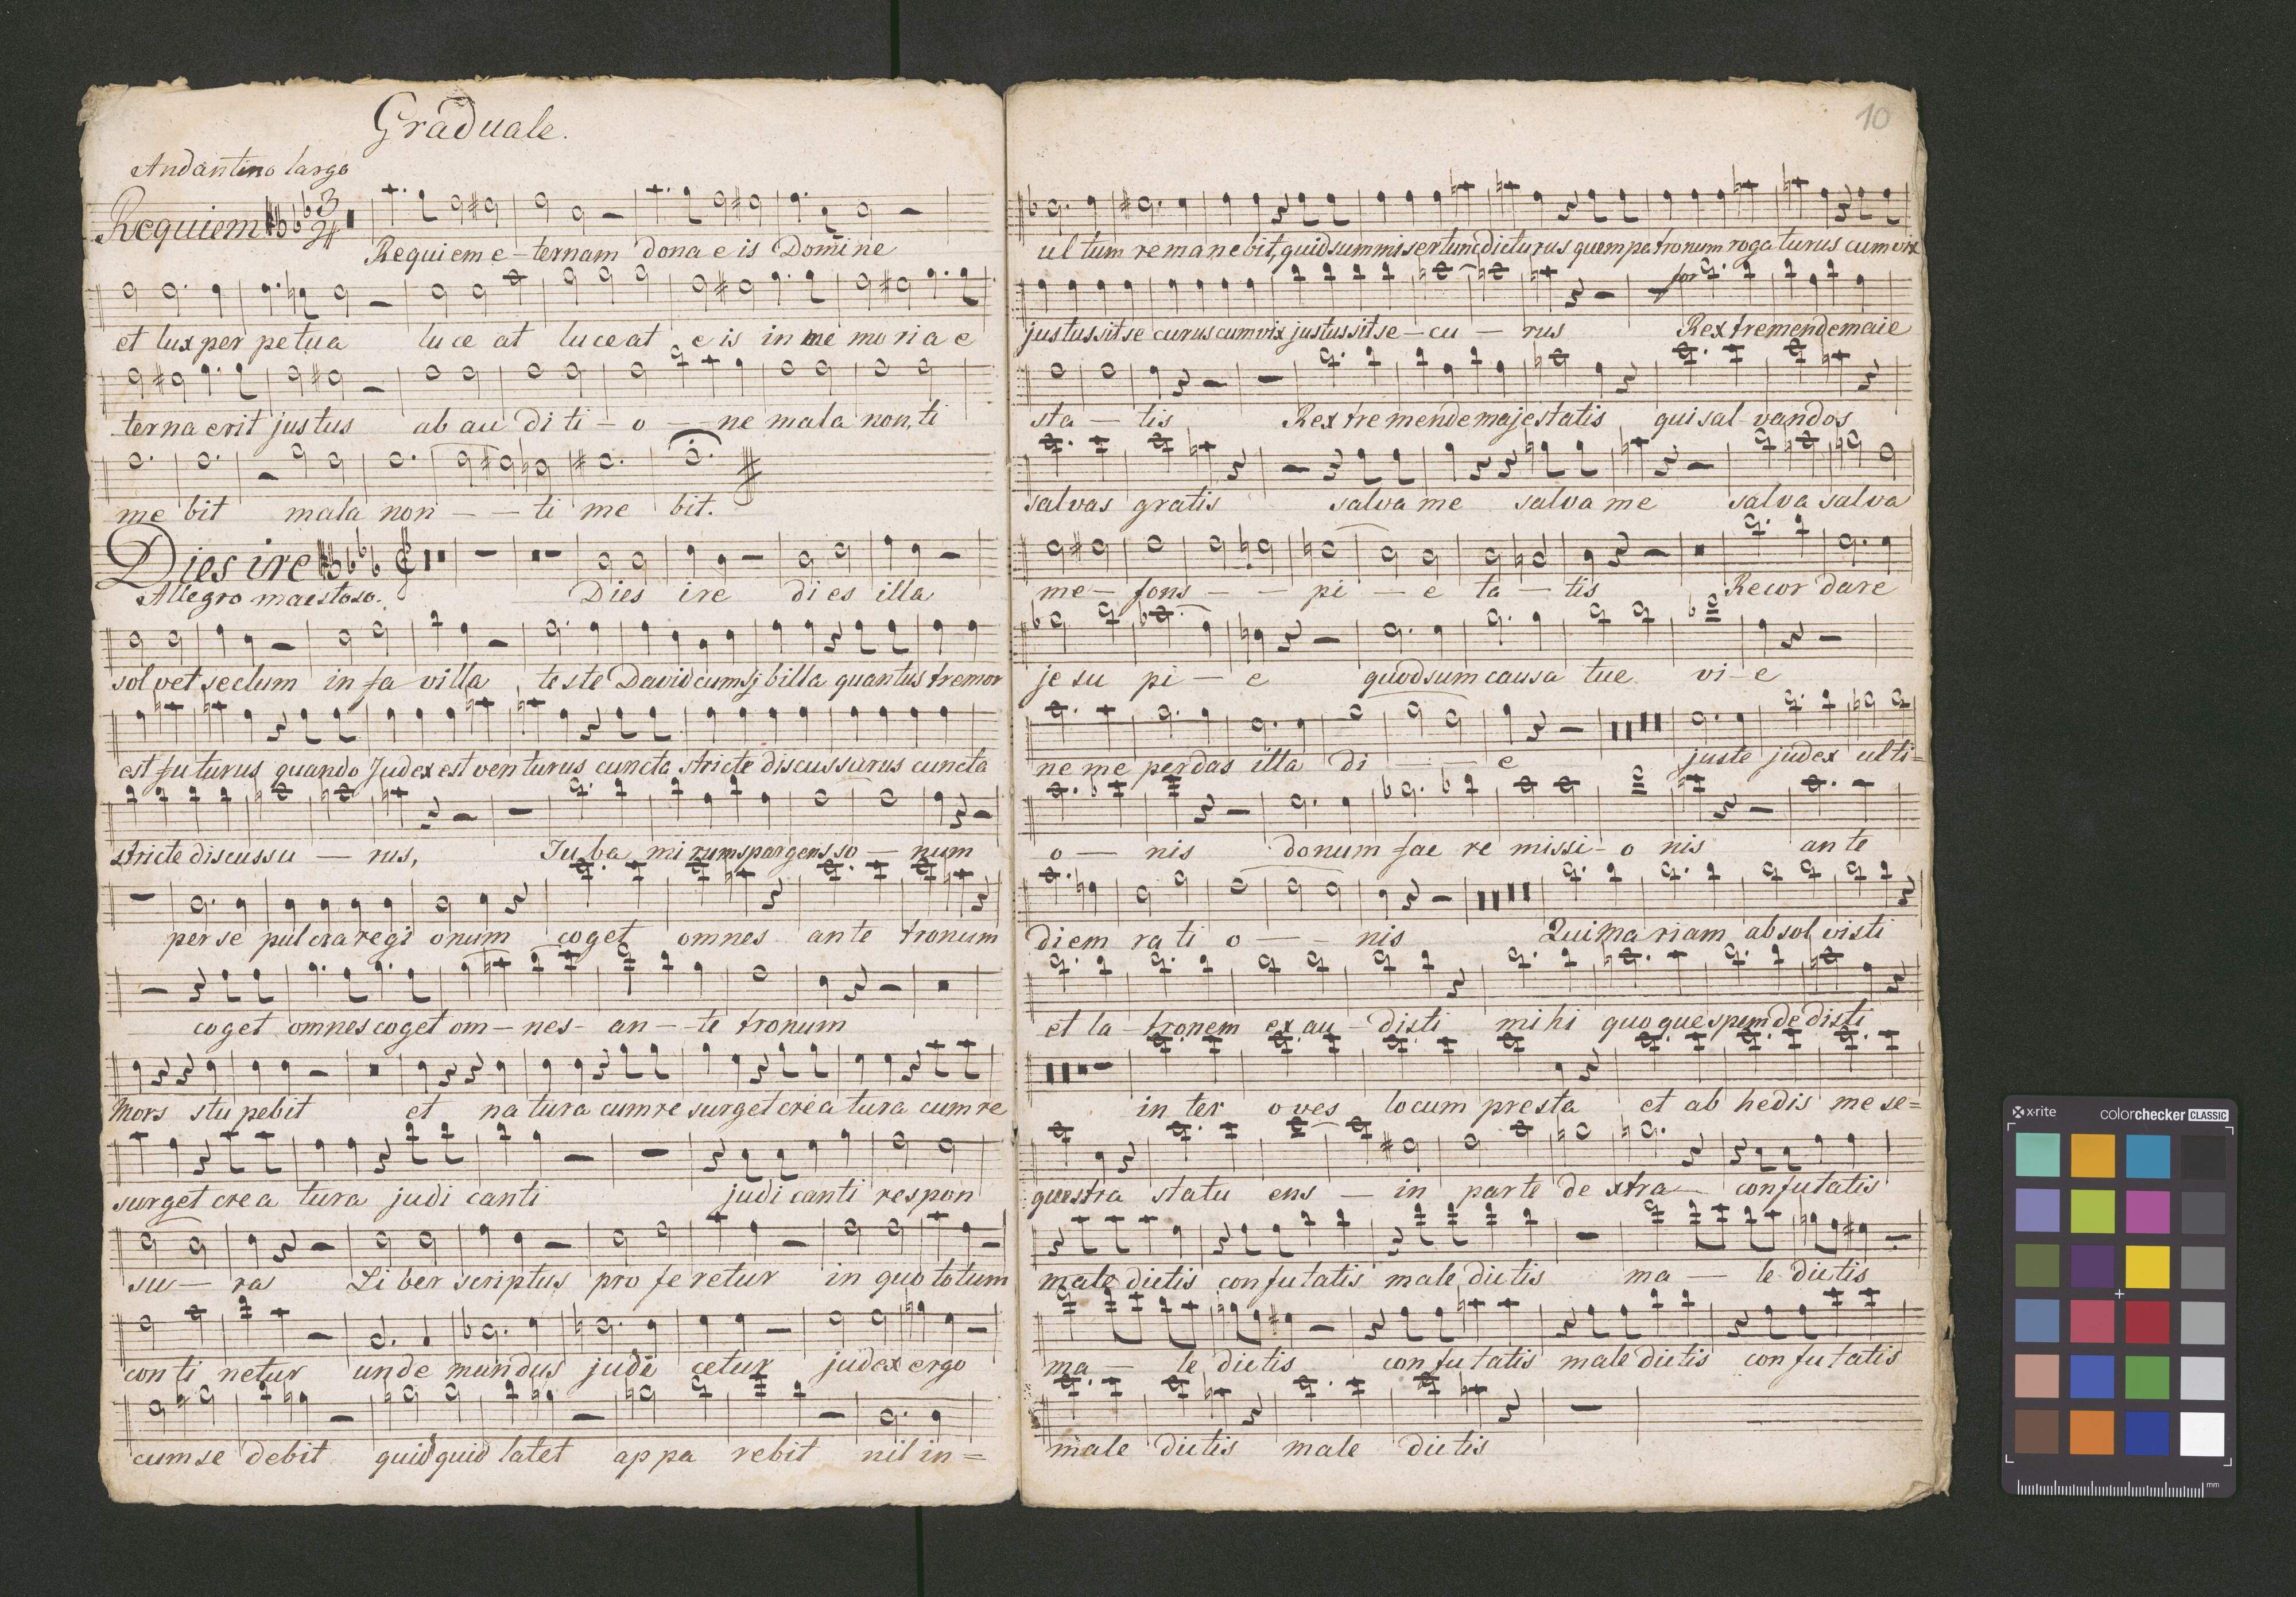 Graduale.
Andantino largo
Requiem
3
4
Requiem e - ternam dona e is Domine
et lux per petua lu ce at lu ce at e is in me mo ri a e
terna erit justus ab au di ti - o - ne mala non, ti
me bit mala non - - ti me bit.
Dies ire
Allegro maestoso. Dies ire di es illa
sol vet seclum in fa villa teste David cum sj billa quantus tremor
est futurus quando Judex est venturus cuncta stricte discussurus cuncta
stricte discussu - rus, Tuba mirum spargens so - num
per se pulcra regi onum coget omnes ante tronum
coget omnes coget om - nes - an - te tronum
Mors stu pebit et na tura cum re surget crea tura cum re
surget crea tura judi canti judi canti respon
su - ra Li ber scriptus pro fe retur in quo totum
con ti netur unde mundus judi cetur judex ergo
cum se debit quid quid latet ap pa rebit nil in =
10
ul tum remanebit, quid sum miser tunc dicturus quem patronum rogaturus cum vix
justus sit se curus cum vix justus sit se - cu - rus for Rex tremende maie
sta - tis Rex tremende majestatis qui sal vandos
salvas gratis salva me salva me salva salva
me - fons - - pi - e ta - tis Recor dare
je su pi - e quod sum causa tue vi - e
ne me perdas illa di - e juste judex ulti =
o - nis donum fac re missi - o nis ante
diem rati o - - nis Qui Mariam absol visti
et la - tronem ex au - disti mihi quoque spem de disti
in ter oves locum presta et ab hedis me se =
questra statu ens - in parte de xtra - confutatis
male dictis confutatis male dictis ma - le dictis
ma - le dictis con fu tatis male dictis con fu tatis
male dictis male dictis
x-rite
colorchecker CLASSIC
mm